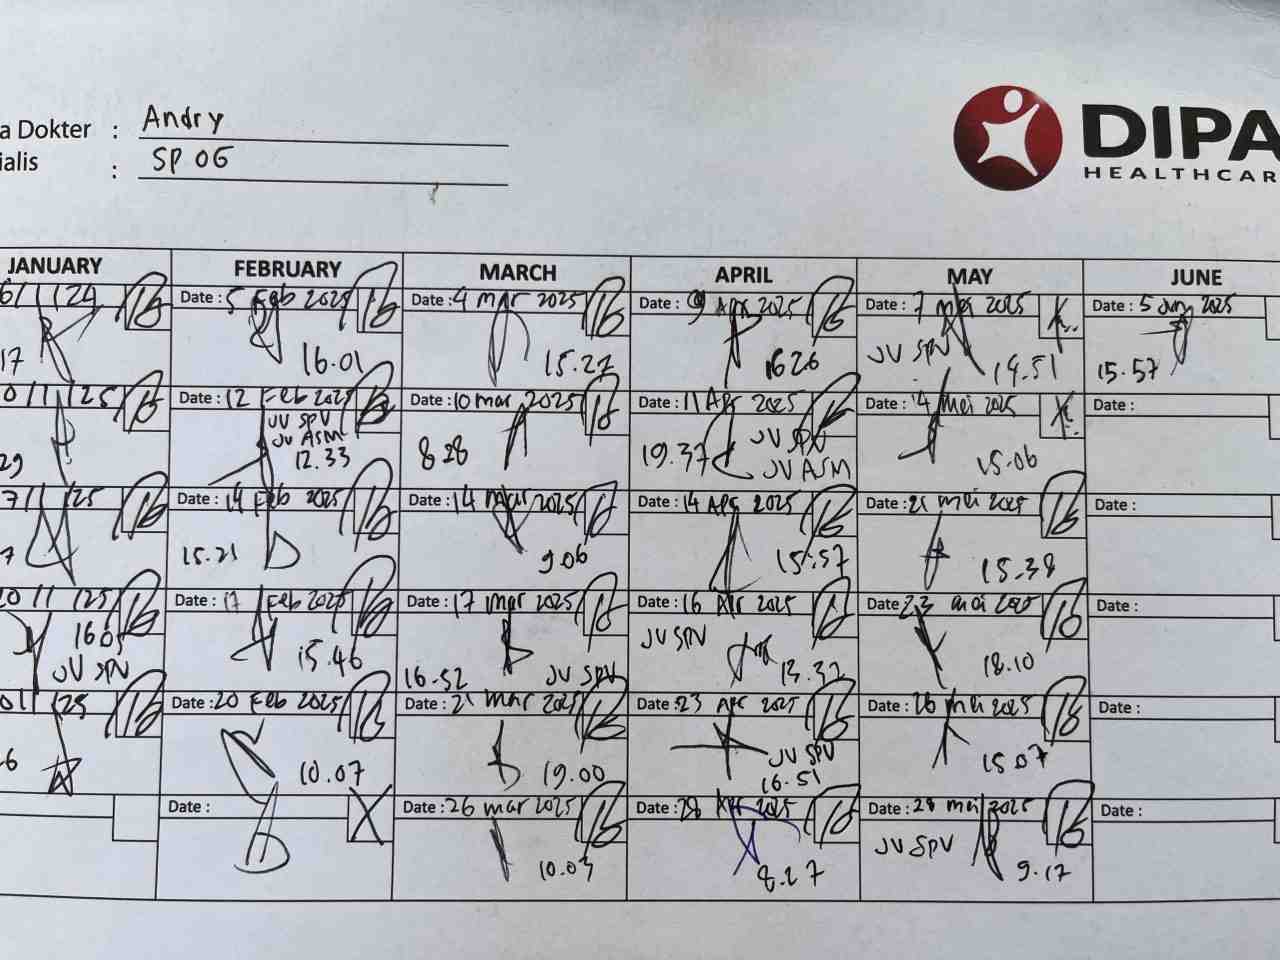 a Dokter : Andry
ialis : SP OG
DIPA
HEALTHCAR
JANUARY FEBRUARY MARCH APRIL MAY JUNE
6/1/24 Date : 5 Feb 2025 Date : 4 mar 2025 Date : 9 Apr 2025 Date : 7 mei 2025 Date : 5 Jun 2025
17 16.01 15.27 16 26 JV SPV 14.51 15.57
0/1/25 Date : 12 Feb 2025 Date : 10 mar 2025 Date : 11 Apr 2025 Date : 14 mei 2025 Date :
29 JV SPV JV ASM 12.33 8 28 19.37 JV SPV JV ASM 15.06
7/1/25 Date : 14 Feb 2025 Date : 14 mar 2025 Date : 14 Apr 2025 Date : 21 mei 2025 Date :
7 15.21 9.06 15.57 15.38
20/1/25 Date : 17 Feb 2025 Date : 17 mar 2025 Date : 16 Apr 2025 Date 23 mei 2025 Date :
JV SPV 15.46 16.52 JV SPV JV SPV 13.32 18.10
/25 Date : 20 Feb 2025 Date : 21 mar 2025 Date : 23 Apr 2025 Date : 26 mei 2025 Date :
6 10.07 19.00 JV SPV 16.51 15.07
Date : Date : 26 mar 2025 Date : 28 Apr 2025 Date : 28 mei 2025 Date :
X 10.03 8.27 JV SPV 9.17